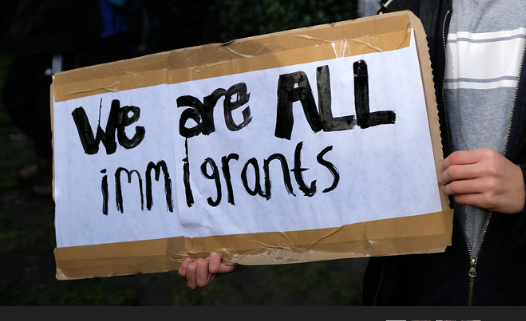 We are ALL
immigrants